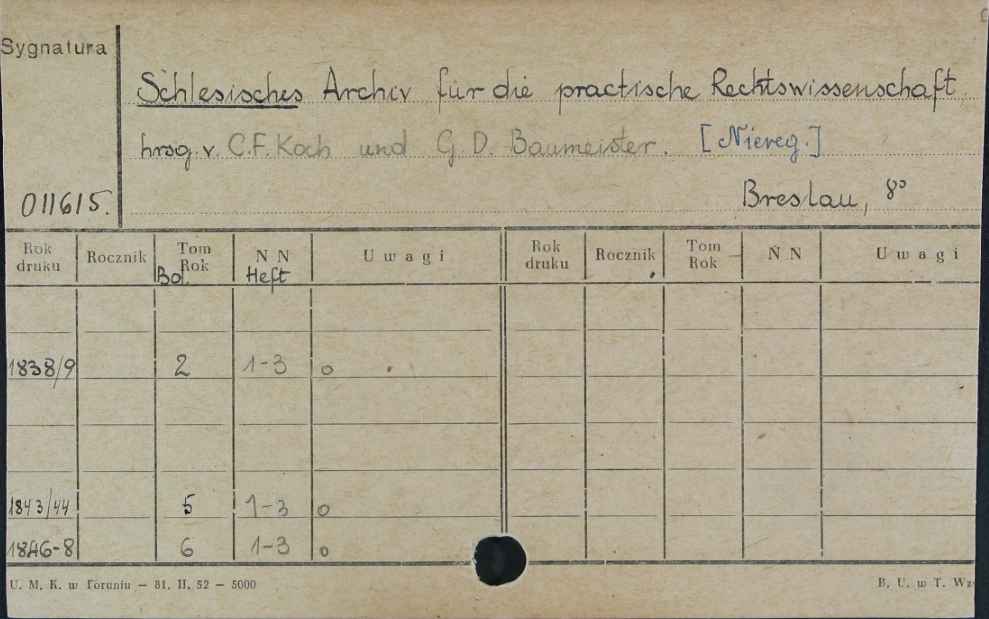 Sygnatura
Schlesisches Archiv für die practische Rechtswissenschaft
hrsg. v. C.F. Koch und G. D. Baumeister. [Niereg.]
011615.
Breslau, 8°
Rok druku Rocznik Tom Rok N N Uwagi Rok druku Rocznik Tom Rok N N Uwagi
Bd. Heft
1838/9 2 1-3 o
1843/44 5 1-3 o
1846-8 6 1-3 o
U. M. K. w Toruniu — 81. II. 52 — 5000
B. U. w T. Wz